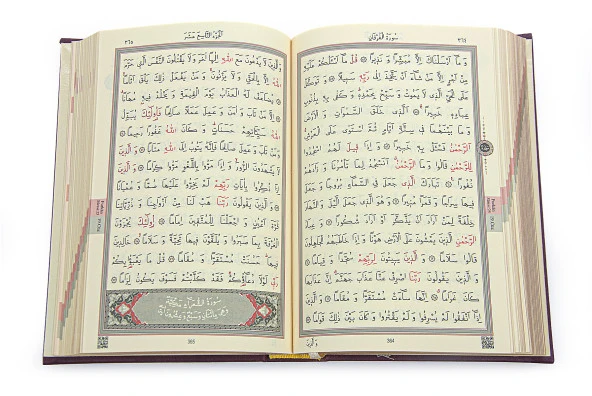 سورة الفرقان
وَمَا أَرْسَلْنَاكَ إِلَّا مُبَشِّرًا وَنَذِيرًا ۝ قُلْ مَا أَسْأَلُكُمْ عَلَيْهِ
مِنْ أَجْرٍ إِلَّا مَنْ شَاءَ أَنْ يَتَّخِذَ إِلَى رَبِّهِ سَبِيلًا ۝ وَتَوَكَّلْ
عَلَى الْحَيِّ الَّذِي لَا يَمُوتُ وَسَبِّحْ بِحَمْدِهِ وَكَفَى بِهِ بِذُنُوبِ
عِبَادِهِ خَبِيرًا ۝ الَّذِي خَلَقَ السَّمَوَاتِ وَالْأَرْضَ
وَمَا بَيْنَهُمَا فِي سِتَّةِ أَيَّامٍ ثُمَّ اسْتَوَى عَلَى الْعَرْشِ
الرَّحْمَنُ فَسْئَلْ بِهِ خَبِيرًا ۝ وَإِذَا قِيلَ لَهُمُ اسْجُدُوا
لِلرَّحْمَنِ قَالُوا وَمَا الرَّحْمَنُ أَنَسْجُدُ لِمَا تَأْمُرُنَا وَزَادَهُمْ
نُفُورًا ۝ تَبَارَكَ الَّذِي جَعَلَ فِي السَّمَاءِ بُرُوجًا وَجَعَلَ
فِيهَا سِرَاجًا وَقَمَرًا مُنِيرًا ۝ وَهُوَ الَّذِي جَعَلَ اللَّيْلَ وَالنَّهَارَ
خِلْفَةً لِمَنْ أَرَادَ أَنْ يَذَّكَّرَ أَوْ أَرَادَ شُكُورًا ۝ وَعِبَادُ
الرَّحْمَنِ الَّذِينَ يَمْشُونَ عَلَى الْأَرْضِ هَوْنًا وَإِذَا خَاطَبَهُمُ الْجَاهِلُونَ
قَالُوا سَلَامًا ۝ وَالَّذِينَ يَبِيتُونَ لِرَبِّهِمْ سُجَّدًا وَقِيَامًا
۝ وَالَّذِينَ يَقُولُونَ رَبَّنَا اصْرِفْ عَنَّا عَذَابَ جَهَنَّمَ إِنَّ عَذَابَهَا
كَانَ غَرَامًا ۝ إِنَّهَا سَاءَتْ مُسْتَقَرًّا وَمُقَامًا ۝ وَالَّذِينَ
إِذَا أَنْفَقُوا لَمْ يُسْرِفُوا وَلَمْ يَقْتُرُوا وَكَانَ بَيْنَ ذَلِكَ قَوَامًا
364
الجزء التاسع عشر
٣٦٥
وَالَّذِينَ لَا يَدْعُونَ مَعَ اللَّهِ إِلَهًا آخَرَ وَلَا يَقْتُلُونَ النَّفْسَ الَّتِي حَرَّمَ
اللَّهُ إِلَّا بِالْحَقِّ وَلَا يَزْنُونَ وَمَنْ يَفْعَلْ ذَلِكَ يَلْقَ أَثَامًا
۝ يُضَاعَفْ لَهُ الْعَذَابُ يَوْمَ الْقِيَمَةِ وَيَخْلُدْ فِيهِ مُهَانًا
۝ إِلَّا مَنْ تَابَ وَآمَنَ وَعَمِلَ عَمَلًا صَالِحًا فَأُولَئِكَ يُبَدِّلُ
اللَّهُ سَيِّئَاتِهِمْ حَسَنَاتٍ وَكَانَ اللَّهُ غَفُورًا رَحِيمًا ۝
وَمَنْ تَابَ وَعَمِلَ صَالِحًا فَإِنَّهُ يَتُوبُ إِلَى اللَّهِ مَتَابًا ۝ وَالَّذِينَ
لَا يَشْهَدُونَ الزُّورَ وَإِذَا مَرُّوا بِاللَّغْوِ مَرُّوا كِرَامًا ۝ وَالَّذِينَ
إِذَا ذُكِّرُوا بِآيَاتِ رَبِّهِمْ لَمْ يَخِرُّوا عَلَيْهَا صُمًّا وَعُمْيَانًا
۝ وَالَّذِينَ يَقُولُونَ رَبَّنَا هَبْ لَنَا مِنْ أَزْوَاجِنَا وَذُرِّيَّاتِنَا
قُرَّةَ أَعْيُنٍ وَاجْعَلْنَا لِلْمُتَّقِينَ إِمَامًا ۝ أُولَئِكَ يُجْزَوْنَ
الْغُرْفَةَ بِمَا صَبَرُوا وَيُلَقَّوْنَ فِيهَا تَحِيَّةً وَسَلَامًا ۝ خَالِدِينَ
فِيهَا حَسُنَتْ مُسْتَقَرًّا وَمُقَامًا ۝ قُلْ مَا يَعْبَؤُا بِكُمْ
رَبِّي لَوْلَا دُعَاؤُكُمْ فَقَدْ كَذَّبْتُمْ فَسَوْفَ يَكُونُ لِزَامًا ۝
365